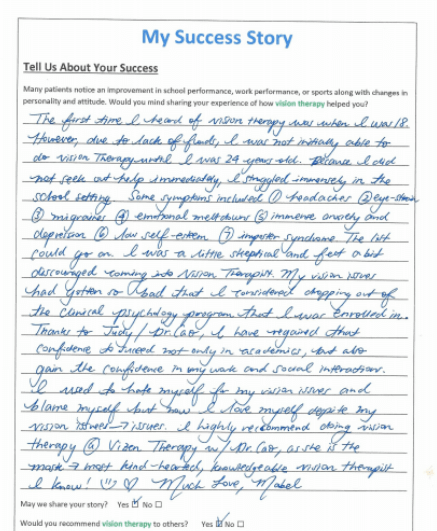 My Success Story
Tell Us About Your Success
Many patients notice an improvement in school performance, work performance, or sports along with changes in
personality and attitude. Would you mind sharing your experience of how vision therapy helped you?
The first time I heard of vision therapy was when I was 18.
However, due to lack of funds, I was not initially able to
do vision Therapy until I was 24 years old. Because I did
not seek out help immediately, I struggled immensely in the
school setting. Some symptoms included ① headaches ② eye-strain
③ migraines ④ emotional meltdowns ⑤ immense anxiety and
depression ⑥ low self-esteem ⑦ imposter syndrome. The list
could go on. I was a little skeptical and felt a bit
discouraged coming into Vision Therapist. My vision issues
had gotten so bad that I considered dropping out of
the clinical psychology program that I was enrolled in.
Thanks to Judy/Dr. Cao, I have regained that
confidence to succeed not only in academics, but also
gain the confidence in my work and social interactions.
I used to hate myself for my vision issues and
blame myself but now I love myself despite my
vision issues → issues. I highly recommend doing vision
therapy @ Vizen Therapy w/ Dr. Cao, as she is the
most kind-hearted, knowledgeable vision therapist
I know! Much Love, Mabel
May we share your story? Yes ☑ No ☐
Would you recommend vision therapy to others? Yes ☑ No ☐